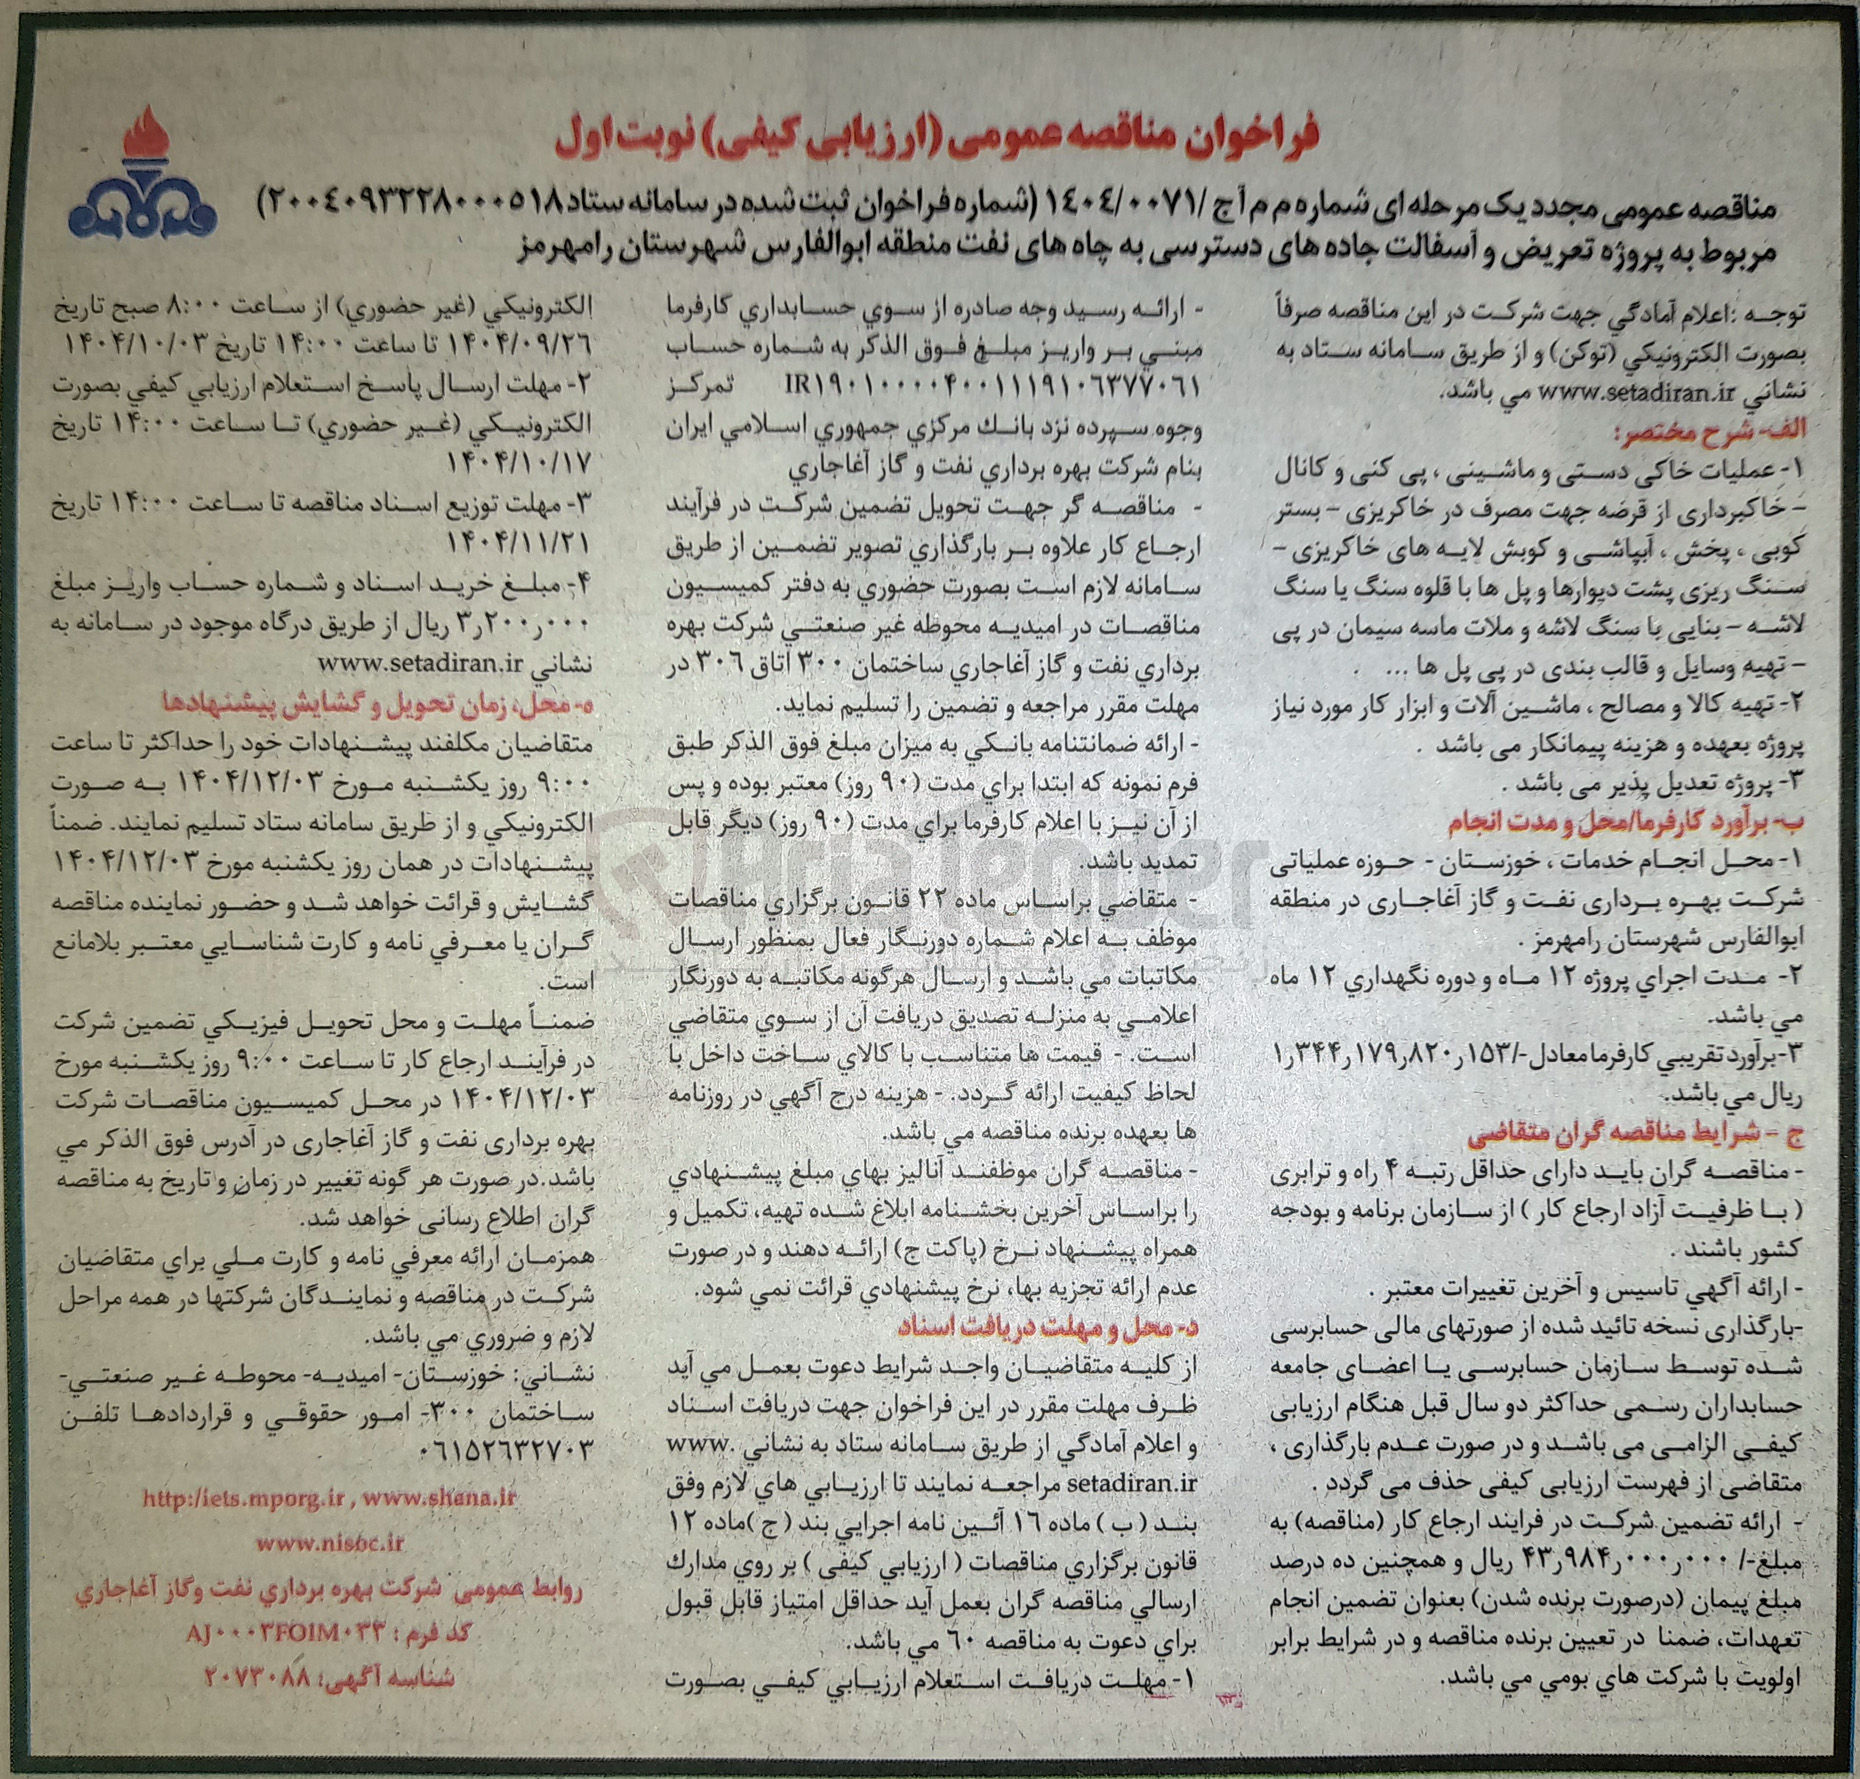 فراخوان مناقصه عمومی (ارزیابی کیفی) نوبت اول
مناقصه عمومی مجدد یک مرحله ای شماره م م آج /۱۴۰۴/۰۰۷۱ (شماره فراخوان ثبت شده در سامانه ستاد ۲۰۰۴۰۹۳۲۲۸۰۰۰۵۱۸)
مربوط به پروژه تعریض و آسفالت جاده های دسترسی به چاه های نفت منطقه ابوالفارس شهرستان رامهرمز
توجه :اعلام آمادگي جهت شرکت در این مناقصه صرفاً
بصورت الکترونیکي (توکن) و از طریق سامانه ستاد به
نشاني www.setadiran.ir مي باشد.
الف- شرح مختصر:
۱- عملیات خاکی دستی و ماشینی ، پی کنی و کانال
– خاکبرداری از قرضه جهت مصرف در خاکریزی – بستر
کوبی ، پخش ، آبپاشی و کوبش لایه های خاکریزی –
سنگ ریزی پشت دیوارها و پل ها با قلوه سنگ یا سنگ
لاشه – بنایی با سنگ لاشه و ملات ماسه سیمان در پی
– تهیه وسایل و قالب بندی در پی پل ها ... .
۲- تهیه کالا و مصالح ، ماشین آلات و ابزار کار مورد نیاز
پروژه بعهده و هزینه پیمانکار می باشد .
۳- پروژه تعدیل پذیر می باشد .
ب- برآورد کارفرما/محل و مدت انجام
۱- محل انجام خدمات ، خوزستان - حوزه عملیاتی
شرکت بهره برداری نفت و گاز آغاجاری در منطقه
ابوالفارس شهرستان رامهرمز .
۲- مدت اجراي پروژه ۱۲ ماه و دوره نگهداري ۱۲ ماه
مي باشد.
۳-برآورد تقریبي کارفرما معادل -/۱۵۳ر۸۲۰ر۱۷۹ر۳۴۴ر۱
ریال مي باشد.
ج – شرایط مناقصه گران متقاضی
- مناقصه گران باید دارای حداقل رتبه ۴ راه و ترابری
( با ظرفیت آزاد ارجاع کار ) از سازمان برنامه و بودجه
کشور باشند .
- ارائه آگهي تاسیس و آخرین تغییرات معتبر .
-بارگذاری نسخه تائید شده از صورتهای مالی حسابرسی
شده توسط سازمان حسابرسی یا اعضای جامعه
حسابداران رسمی حداکثر دو سال قبل هنگام ارزیابی
کیفی الزامی می باشد و در صورت عدم بارگذاری ،
متقاضی از فهرست ارزیابی کیفی حذف می گردد .
- ارائه تضمین شرکت در فرایند ارجاع کار (مناقصه) به
مبلغ-/ ۰۰۰ر۰۰۰ر۹۸۴ر۴۳ ریال و همچنین ده درصد
مبلغ پیمان (درصورت برنده شدن) بعنوان تضمین انجام
تعهدات، ضمنا در تعیین برنده مناقصه و در شرایط برابر
اولویت با شرکت هاي بومي مي باشد.
- ارائه رسید وجه صادره از سوي حسابداري کارفرما
مبني بر واریز مبلغ فوق الذکر به شماره حساب
IR۱۹۰۱۰۰۰۰۴۰۰۱۱۱۹۱۰۶۳۷۷۰۶۱ تمرکز
وجوه سپرده نزد بانك مرکزي جمهوري اسلامي ایران
بنام شرکت بهره برداري نفت و گاز آغاجاري
- مناقصه گر جهت تحویل تضمین شرکت در فرآیند
ارجاع کار علاوه بر بارگذاري تصویر تضمین از طریق
سامانه لازم است بصورت حضوري به دفتر کمیسیون
مناقصات در امیدیه محوطه غیر صنعتي شرکت بهره
برداري نفت و گاز آغاجاري ساختمان ۳۰۰ اتاق ۳۰۶ در
مهلت مقرر مراجعه و تضمین را تسلیم نماید.
- ارائه ضمانتنامه بانکي به میزان مبلغ فوق الذکر طبق
فرم نمونه که ابتدا براي مدت (۹۰ روز) معتبر بوده و پس
از آن نیز با اعلام کارفرما براي مدت (۹۰ روز) دیگر قابل
تمدید باشد.
- متقاضي براساس ماده ۲۲ قانون برگزاري مناقصات
موظف به اعلام شماره دورنگار فعال بمنظور ارسال
مکاتبات مي باشد و ارسال هرگونه مکاتبه به دورنگار
اعلامي به منزله تصدیق دریافت آن از سوي متقاضي
است. - قیمت ها متناسب با کالاي ساخت داخل با
لحاظ کیفیت ارائه گردد. - هزینه درج آگهي در روزنامه
ها بعهده برنده مناقصه مي باشد.
- مناقصه گران موظفند آنالیز بهاي مبلغ پیشنهادي
را براساس آخرین بخشنامه ابلاغ شده تهیه، تکمیل و
همراه پیشنهاد نرخ (پاکت ج) ارائه دهند و در صورت
عدم ارائه تجزیه بها، نرخ پیشنهادي قرائت نمي شود.
د- محل و مهلت دریافت اسناد
از کلیه متقاضیان واجد شرایط دعوت بعمل مي آید
ظرف مهلت مقرر در این فراخوان جهت دریافت اسناد
و اعلام آمادگي از طریق سامانه ستاد به نشاني www.
setadiran.ir مراجعه نمایند تا ارزیابي هاي لازم وفق
بند ( ب ) ماده ۱۶ آئین نامه اجرایي بند ( ج )ماده ۱۲
قانون برگزاري مناقصات ( ارزیابي کیفي ) بر روي مدارك
ارسالي مناقصه گران بعمل آید حداقل امتیاز قابل قبول
براي دعوت به مناقصه ۶۰ مي باشد.
۱- مهلت دریافت استعلام ارزیابي کیفي بصورت
الکترونیکي (غیر حضوري) از ساعت ۸:۰۰ صبح تاریخ
۱۴۰۴/۰۹/۲۶ تا ساعت ۱۴:۰۰ تاریخ ۱۴۰۴/۱۰/۰۳
۲- مهلت ارسال پاسخ استعلام ارزیابي کیفي بصورت
الکترونیکي (غیر حضوري) تا ساعت ۱۴:۰۰ تاریخ
۱۴۰۴/۱۰/۱۷
۳- مهلت توزیع اسناد مناقصه تا ساعت ۱۴:۰۰ تاریخ
۱۴۰۴/۱۱/۲۱
۴- مبلغ خرید اسناد و شماره حساب واریز مبلغ
۰۰۰ر۲۰۰ر۳ ریال از طریق درگاه موجود در سامانه به
نشاني www.setadiran.ir
ه- محل، زمان تحویل و گشایش پیشنهادها
متقاضیان مکلفند پیشنهادات خود را حداکثر تا ساعت
۹:۰۰ روز یکشنبه مورخ ۱۴۰۴/۱۲/۰۳ به صورت
الکترونیکي و از طریق سامانه ستاد تسلیم نمایند. ضمناً
پیشنهادات در همان روز یکشنبه مورخ ۱۴۰۴/۱۲/۰۳
گشایش و قرائت خواهد شد و حضور نماینده مناقصه
گران یا معرفي نامه و کارت شناسایي معتبر بلامانع
است.
ضمناً مهلت و محل تحویل فیزیکي تضمین شرکت
در فرآیند ارجاع کار تا ساعت ۹:۰۰ روز یکشنبه مورخ
۱۴۰۴/۱۲/۰۳ در محل کمیسیون مناقصات شرکت
بهره برداری نفت و گاز آغاجاری در آدرس فوق الذکر مي
باشد.در صورت هر گونه تغییر در زمان و تاریخ به مناقصه
گران اطلاع رسانی خواهد شد.
همزمان ارائه معرفي نامه و کارت ملي براي متقاضیان
شرکت در مناقصه و نمایندگان شرکتها در همه مراحل
لازم و ضروري مي باشد.
نشاني: خوزستان- امیدیه- محوطه غیر صنعتي-
ساختمان ۳۰۰- امور حقوقي و قراردادها تلفن
۰۶۱۵۲۶۳۲۷۰۳
http:/iets.mporg.ir , www.shana.ir
www.nisoc.ir
روابط عمومی شرکت بهره برداري نفت وگاز آغاجاري
کد فرم : AJ۰۰۰۳FOIM۰۳۳
شناسه آگهی: ۲۰۷۳۰۸۸